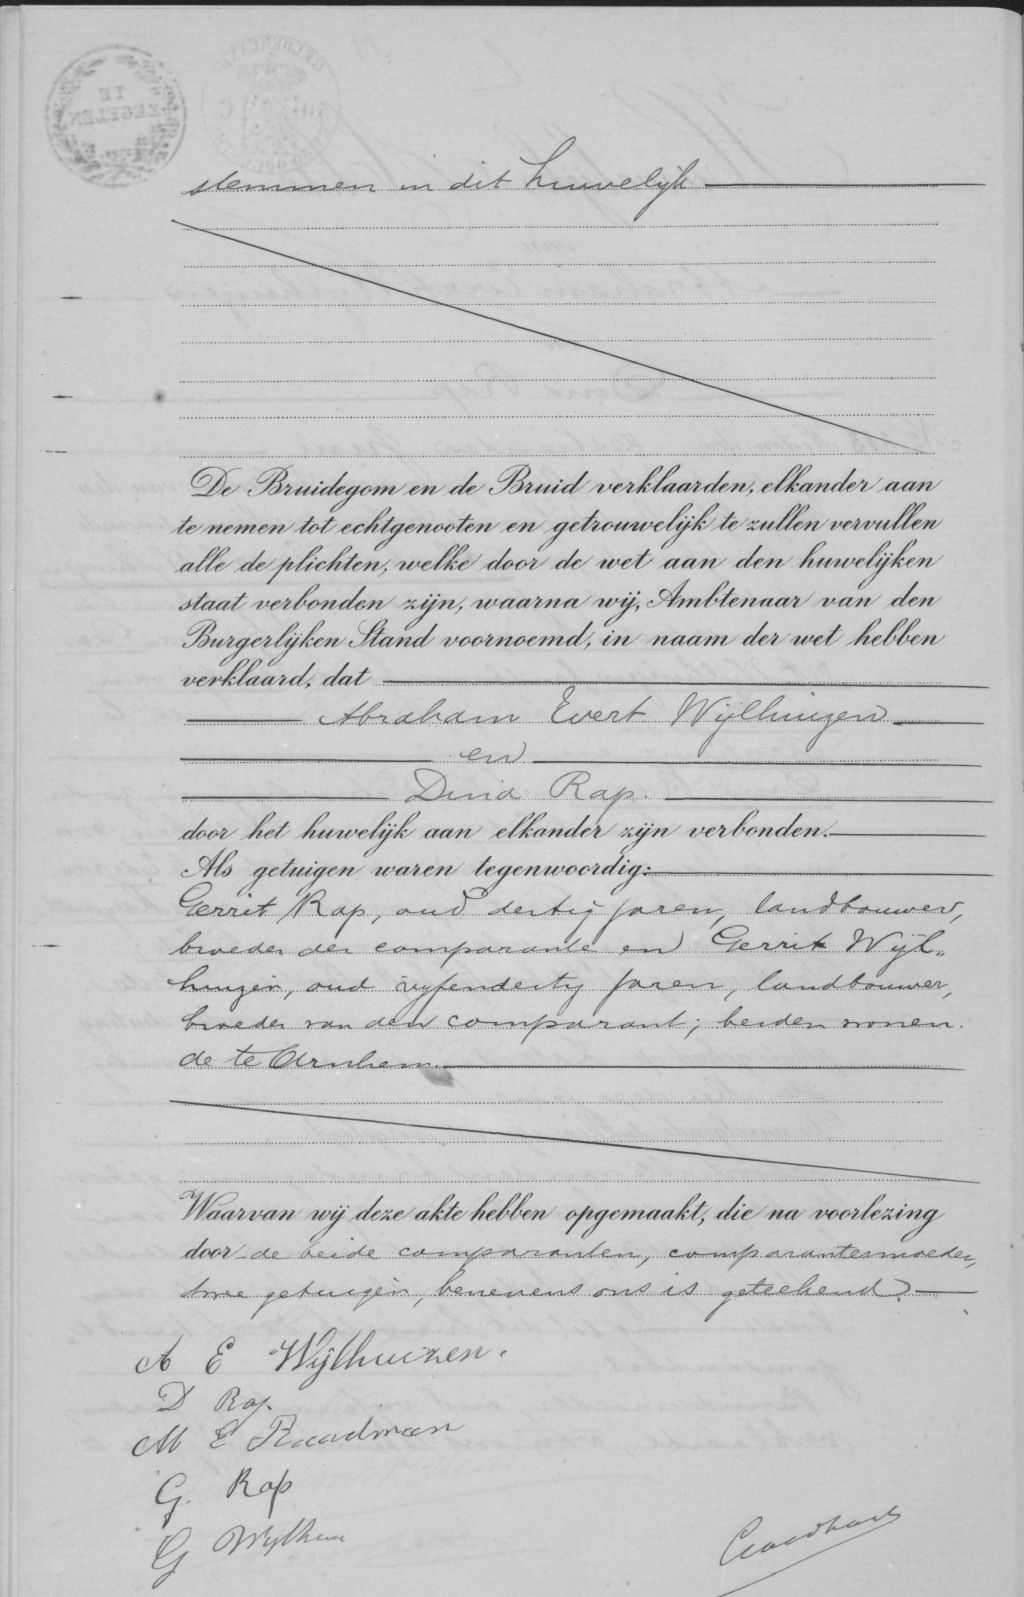 stemmen in dit huwelijk
De Bruidegom en de Bruid verklaarden, elkander aan
te nemen tot echtgenooten en getrouwelijk te zullen vervullen
alle de plichten, welke door de wet aan den huwelijken
staat verbonden zijn, waarna wij, Ambtenaar van den
Burgerlijken Stand voornoemd, in naam der wet hebben
verklaard, dat
Abraham Evert Wijlhuizen
en
Dina Rap.
door het huwelijk aan elkander zijn verbonden.
Als getuigen waren tegenwoordig:
Gerrit Rap, oud dertig jaren, landbouwer,
broeder der comparante en Gerrit Wijl„
huizen, oud vijfendertig jaren, landbouwer,
broeder van den comparant; beiden wonen
de te Arnhem.
Waarvan wij deze akte hebben opgemaakt, die na voorlezing
door de beide comparanten, comparantesmoeder,
twee getuigen, benevens ons is geteekend.
A E Wijlhuizen.
D Rap.
M E Raadman
G. Rap
G Wylhuizen
TE
ZEGELEN